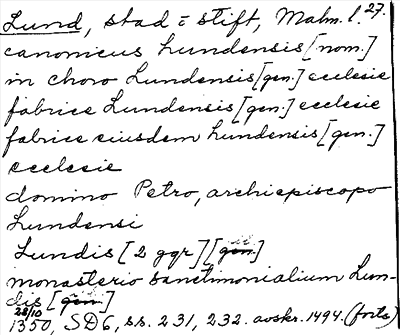 Lund, stad = stift, Malm. l. 27.
canonicus Lundensis [nom.]
in choro Lundensis [gen.] ecclesie
fabrice Lundensis [gen.] ecclesie
fabrice eiusdem Lundensis [gen.]
ecclesie
domino Petro, archiepiscopo
Lundensi
Lundis [2 ggr]
monasterio sanctimonialium Lun-
dis
28/10
1350, SD6, ss. 231, 232. avskr. 1494. (forts)